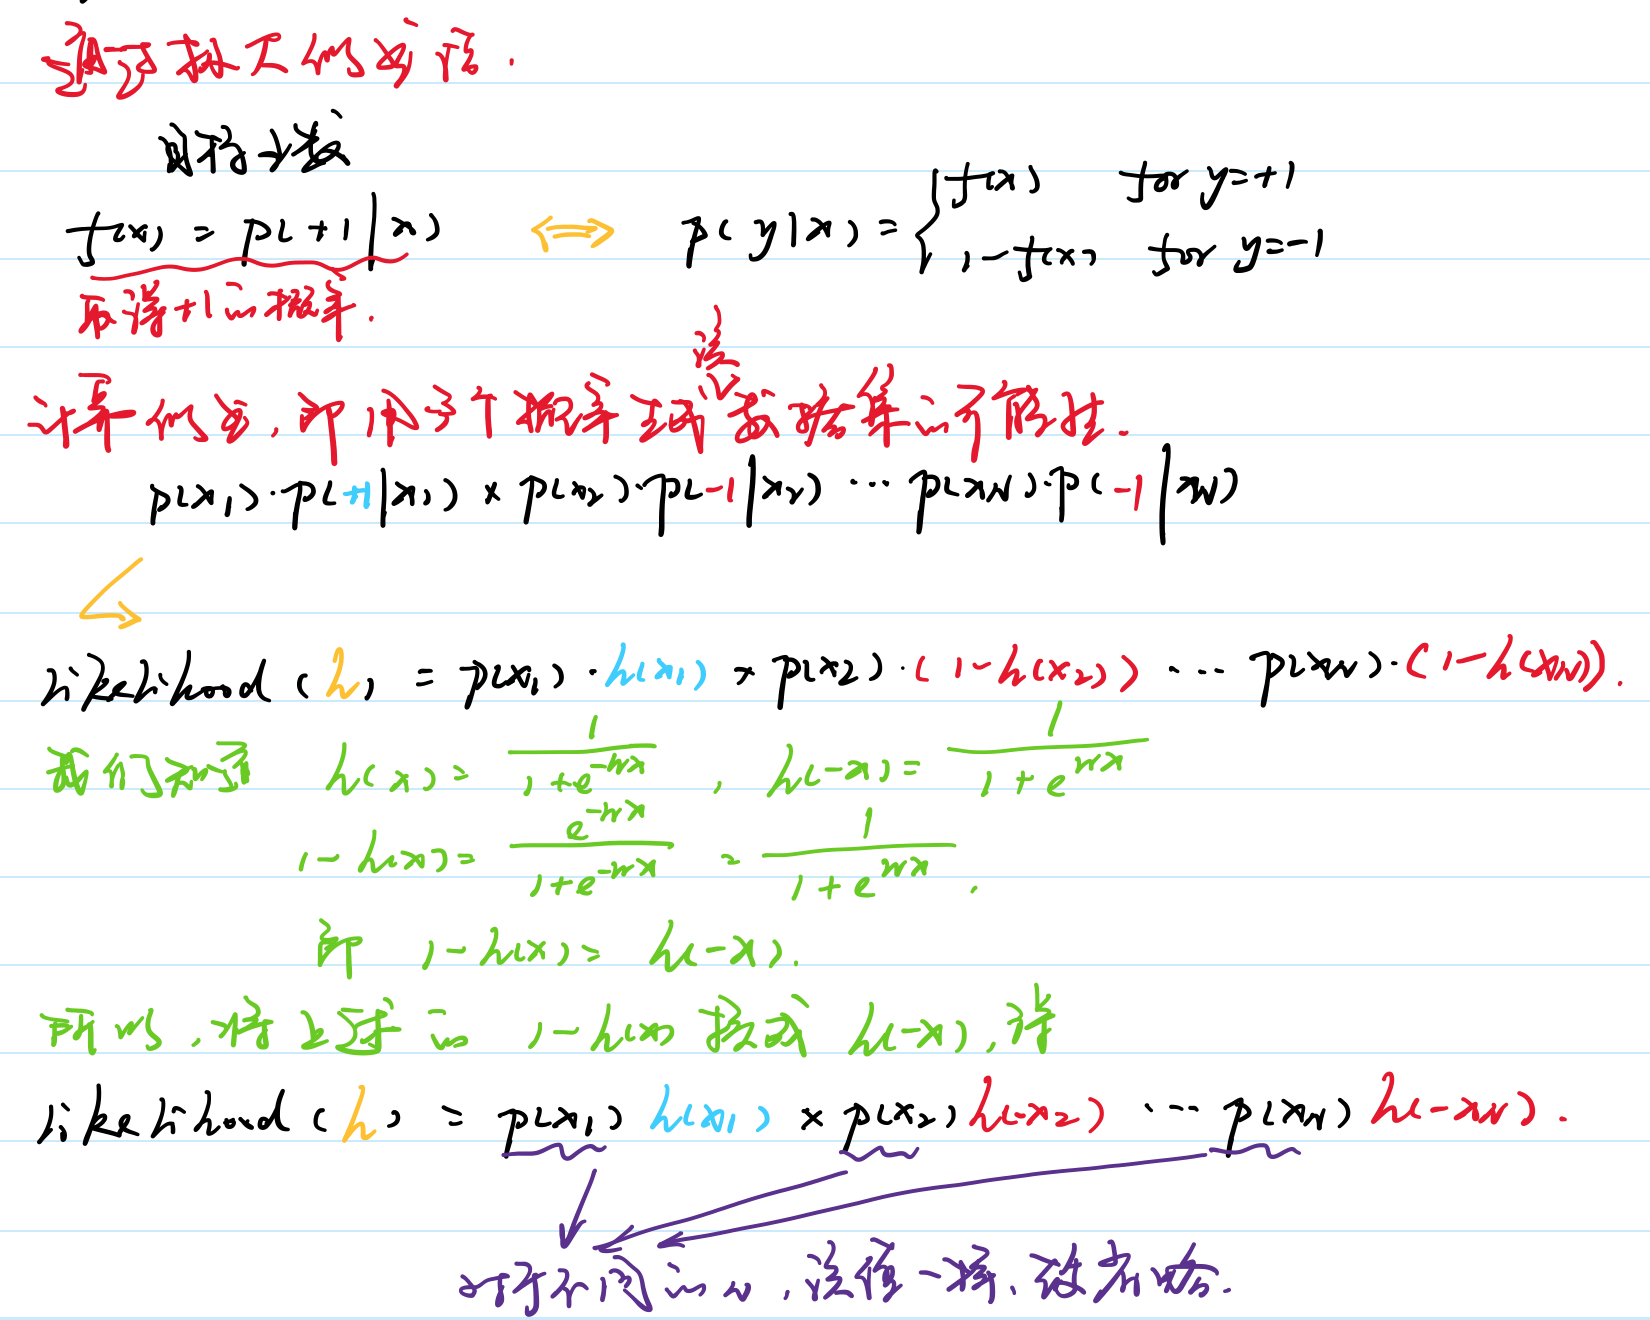 通过极大似然法.
目标函数
f(x) = p(+1|x) ⟺ p(y|x) = { f(x) for y=+1
1-f(x) for y=-1
取得+1的概率.
该
计算似然,即用这个概率生成数据集的可能性.
p(x₁)·p(+1|x₁) × p(x₂)·p(-1|x₂) ··· p(x_N)·p(-1|x_N)
likelihood(h) = p(x₁)·h(x₁) × p(x₂)·(1-h(x₂)) ··· p(x_N)·(1-h(x_N)).
我们知道 h(x) = 1/(1+e^{-wx}), h(-x) = 1/(1+e^{wx})
1-h(x) = e^{-wx}/(1+e^{-wx}) = 1/(1+e^{wx}).
即 1-h(x) = h(-x).
所以,将上述的 1-h(x) 换成 h(-x),得
likelihood(h) = p(x₁) h(x₁) × p(x₂) h(-x₂) ··· p(x_N) h(-x_N).
对于不同的w,该值一样,故忽略.